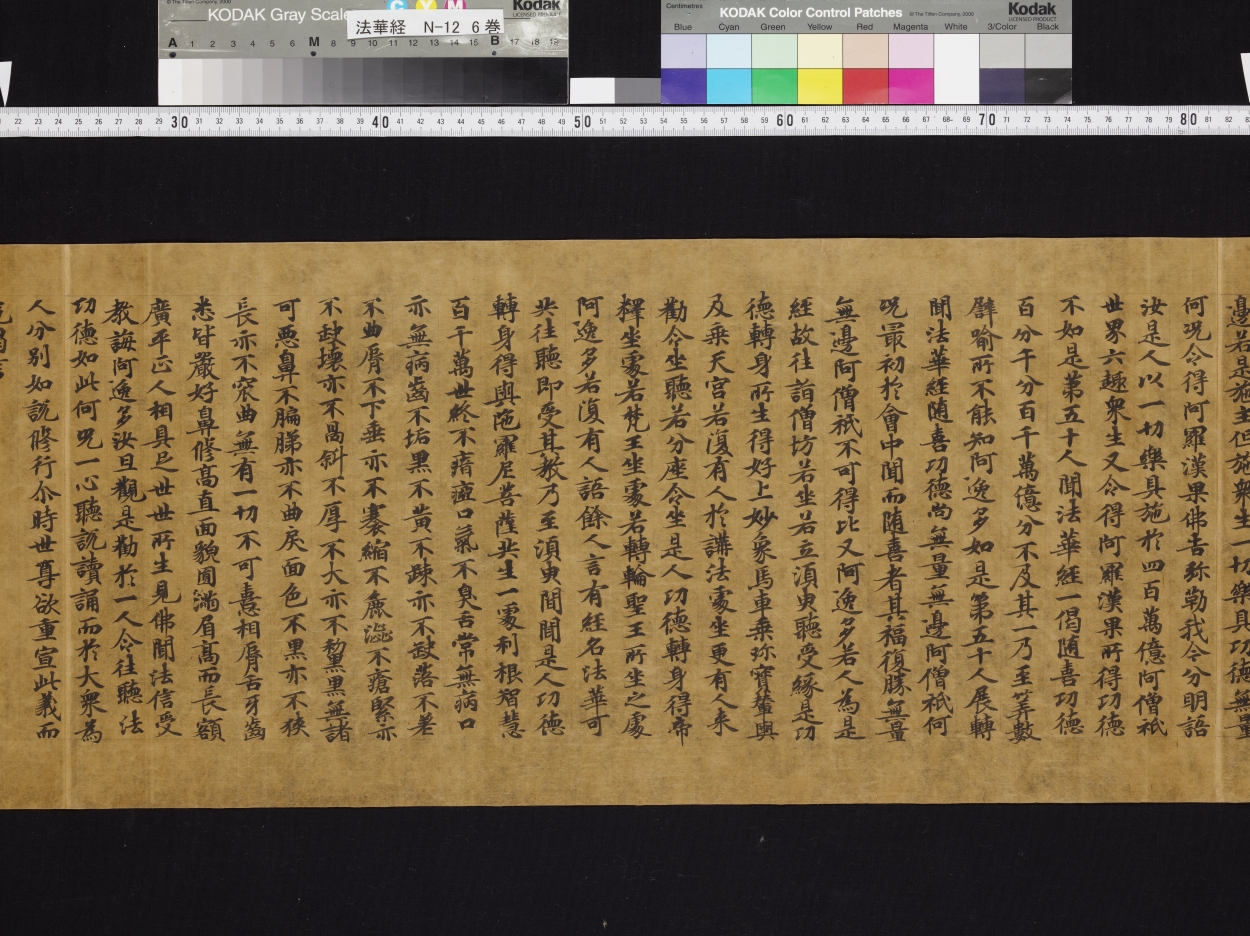 KODAK Gray Scale
© The Tiffen Company, 2000
Kodak
LICENSED PRODUCT
C Y M
法華経 N-12 6巻
A 1 2 3 4 5 6 M 8 9 10 11 12 13 14 15 B 17 18 19
Centimetres
KODAK Color Control Patches
© The Tiffen Company, 2000
Kodak
LICENSED PRODUCT
Blue Cyan Green Yellow Red Magenta White 3/Color Black
22 23 24 25 26 27 28 29 30 31 32 33 34 35 36 37 38 39 40 41 42 43 44 45 46 47 48 49 50 51 52 53 54 55 56 57 58 59 60 61 62 63 64 65 66 67 68 69 70 71 72 73 74 75 76 77 78 79 80 81 82
邊若是施主但施衆生一切樂具功德無量
何况令得阿羅漢果佛告弥勒我今分明語
汝是人以一切樂具施於四百萬億阿僧祇
世界六趣衆生又令得阿羅漢果所得功德
不如是第五十人聞法華經一偈随喜功德
百分千分百千萬億分不及其一乃至筭數
譬喻所不能知阿逸多如是第五十人展轉
聞法華經随喜功德尚無量無邊阿僧祇何
况最初於會中聞而随喜者其福復勝無量
無邊阿僧祇不可得比又阿逸多若人為是
經故往詣僧坊若坐若立湏臾聽受緣是功
德轉身所生得好上妙象馬車乗珎寳輦輿
及乗天宮若復有人於講法處坐更有人来
勸令坐聽若分座令坐是人功德轉身得帝
釋坐處若梵王坐處若轉輪聖王所坐之處
阿逸多若復有人語餘人言有經名法華可
共往聽即受其教乃至湏臾間聞是人功德
轉身得與陁羅尼菩薩共生一處利根智慧
百千萬世終不瘖瘂口氣不臭舌常無病口
亦無病齒不垢黑不黄不踈亦不缺落不差
不曲脣不下垂亦不褰縮不麁澁不瘡緊亦
不缺壊亦不喎斜不厚不大亦不黧黒無諸
可惡鼻不膈㬱亦不曲戾面色不黒亦不狹
長亦不窊曲無有一切不可憙相脣舌牙齒
悉皆嚴好鼻修高直面貌圎滿眉高而長額
廣平正人相具足世世所生見佛聞法信受
教誨阿逸多汝且觀是勸於一人令往聽法
功德如此何况一心聽說讀誦而於大衆為
人分别如說修行尒時世尊欲重宣此義而